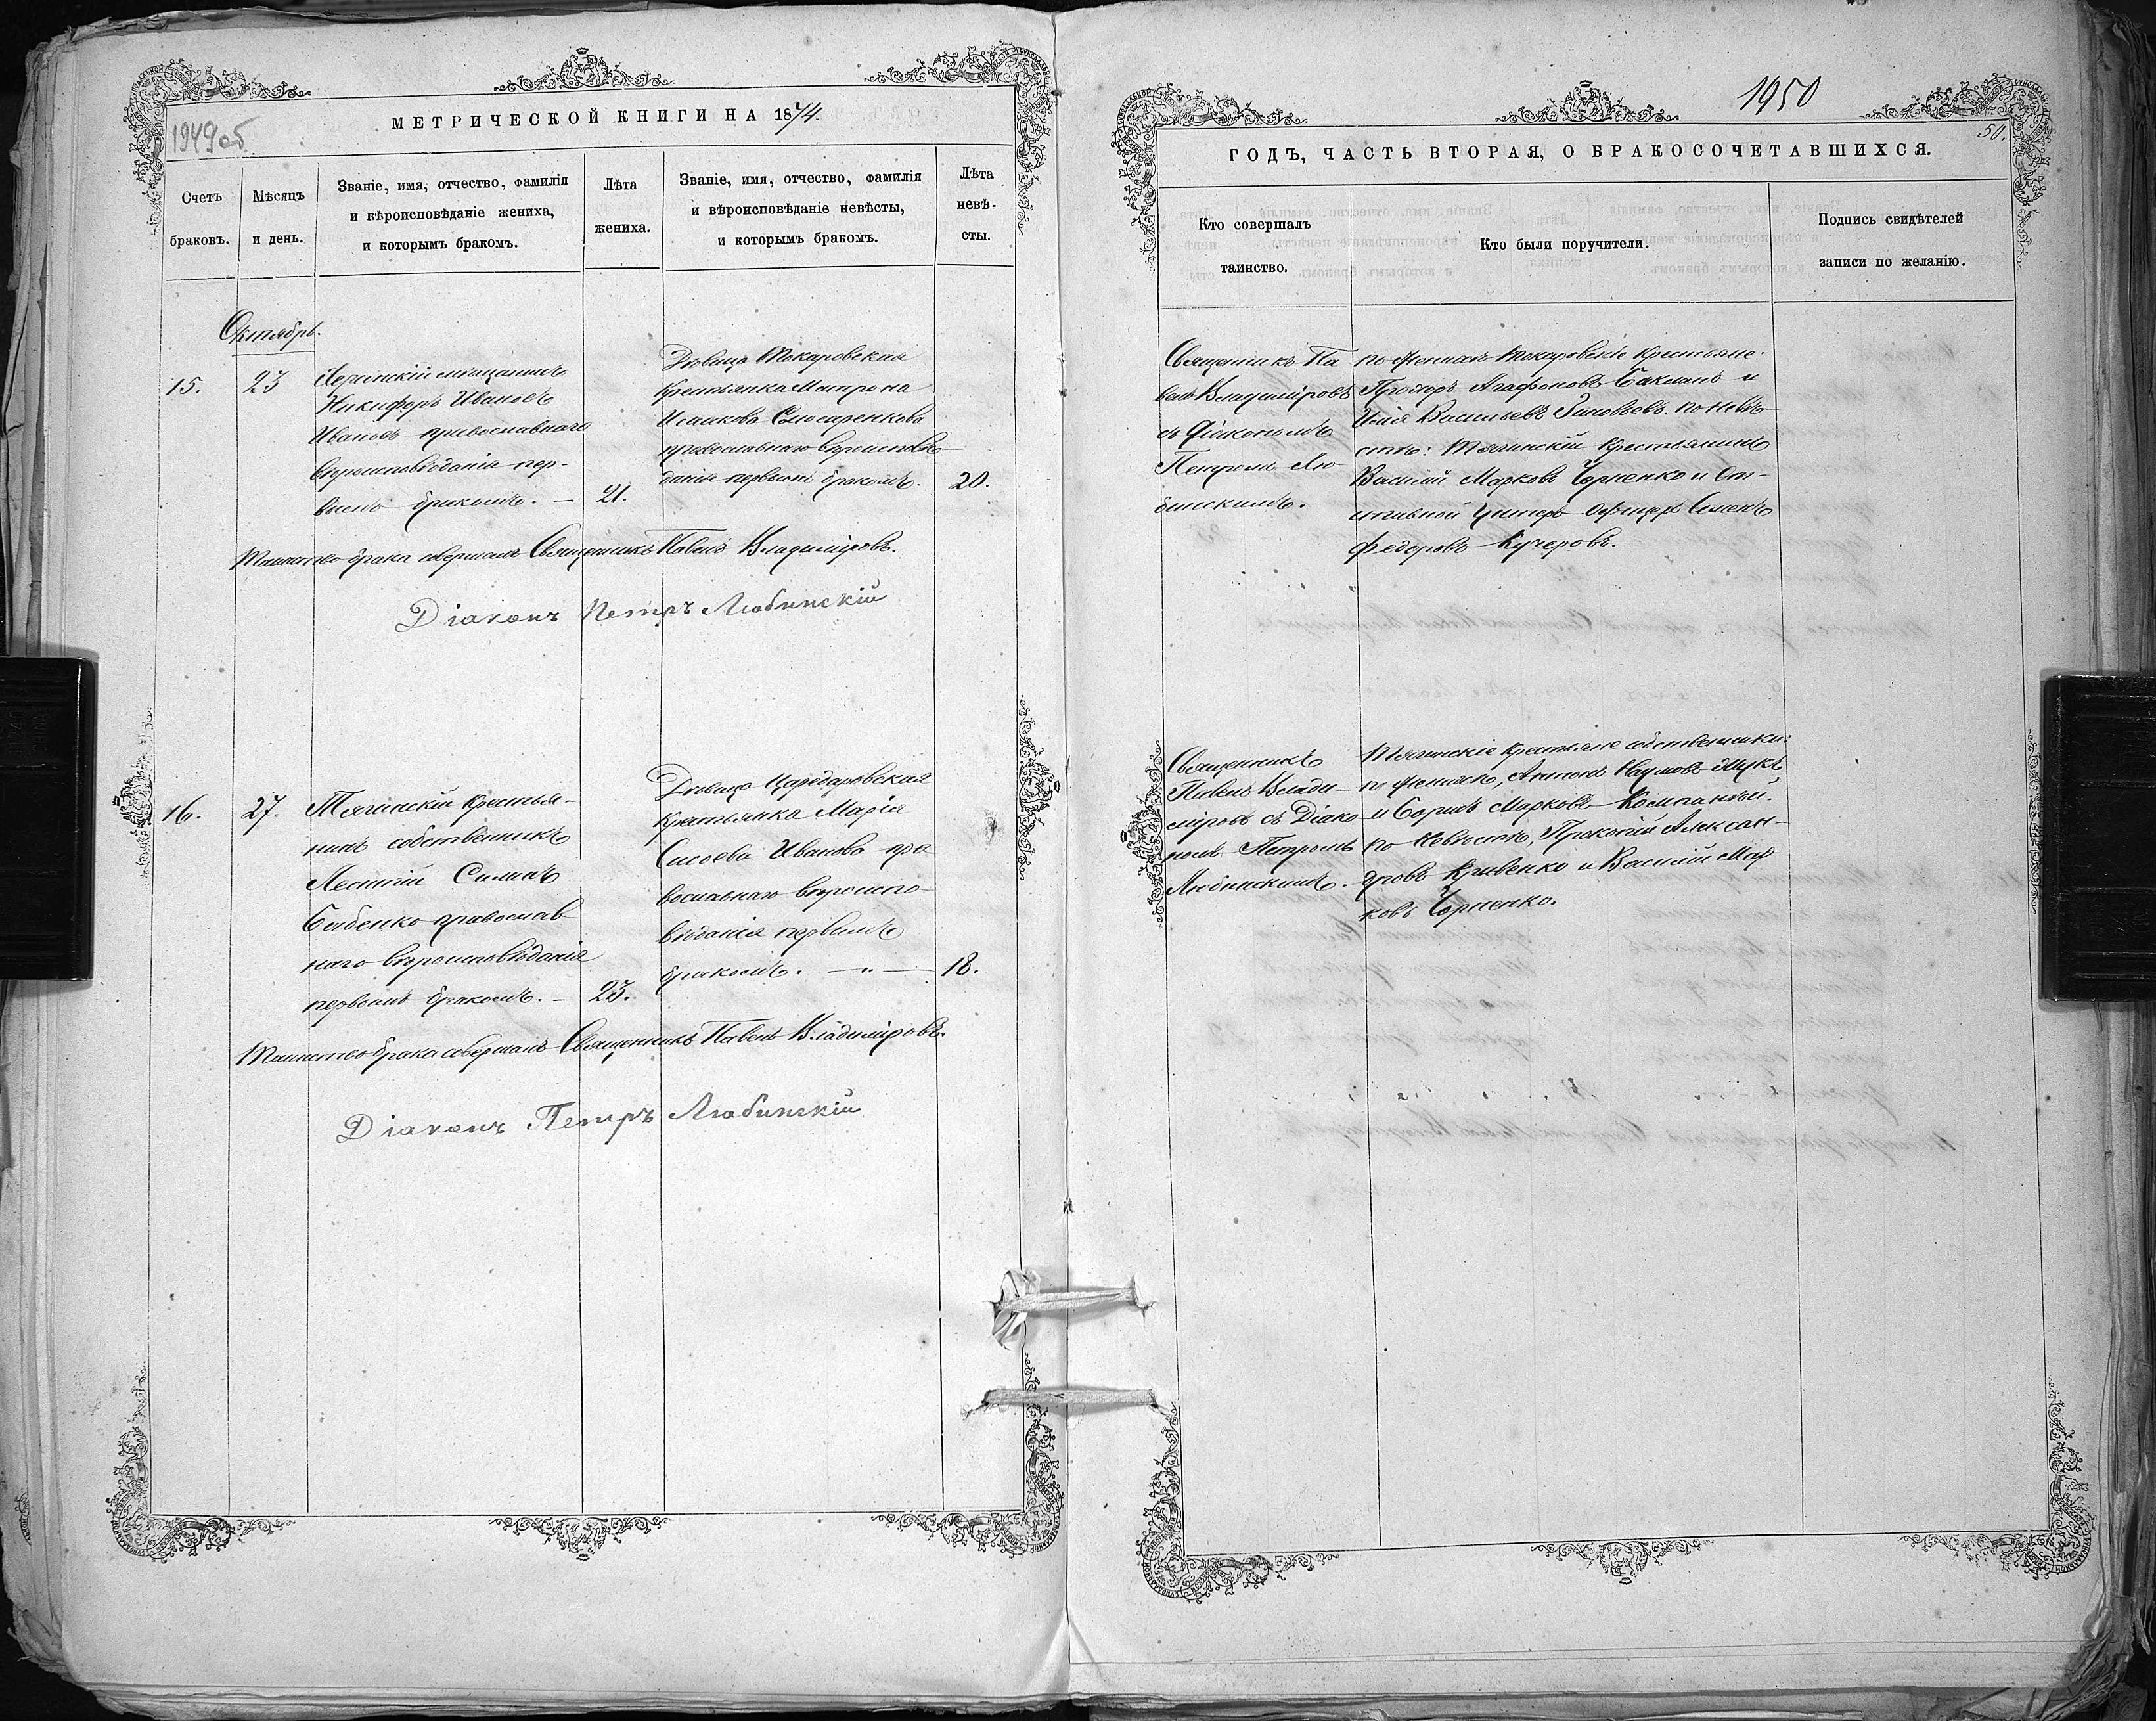 МЕТРИЧЕСКОЙ КНИГИ НА 1874.
1949об
Счетъ браковъ.
Мѣсяцъ и день.
Званіе, имя, отчество, фамилія
и вѣроисповѣданіе жениха,
и которымъ бракомъ.
Лѣта
жениха.
Званіе, имя, отчество, фамилія
и вѣроисповѣданіе невѣсты,
и которымъ бракомъ.
Лѣта
невѣ-
сты.
Октябрь.
15.
23
мѣщанинъ
Никифоръ Ивановъ
Ивановъ православнаго
вѣроисповѣданія пер-
вымъ бракомъ. —
21.
Дѣвица Токаровская
крестьянка Матрона
Исаакова Слюсаренкова
православнаго вѣроисповѣ-
данія первымъ бракомъ.
20.
Таинство брака совершалъ Священникъ Павелъ Владиміровъ.
Діаконъ Петръ Любинскій
16.
27.
Тягинскій крестья-
нинъ собственникъ
Леонтій
православ
наго вѣроисповѣданія
первымъ бракомъ. —
23.
Дѣвица
крестьянка Марія
Сисоева Иванова пра
вославнаго вѣроиспо-
вѣданія первымъ
бракомъ. — „ —
18.
Таинство брака совершалъ Священникъ Павелъ Владиміровъ.
Діаконъ Петръ Любинскій
1950
50.
ГОДЪ, ЧАСТЬ ВТОРАЯ, О БРАКОСОЧЕТАВШИХСЯ.
Кто совершалъ
таинство.
Кто были поручители.
Подпись свидѣтелей
записи по желанію.
Священникъ Па
велъ Владиміровъ
съ Діакономъ
Петромъ Лю
бинскимъ.
по женихѣ Токаровскіе крестьяне:
Агафоновъ Бакланъ и
Илія Васильевъ Зиновьевъ. по невѣ-
стѣ: Тягинскій крестьянинъ
Василій Марковъ Чорненко и От-
ставной Унтеръ-Офицеръ Семенъ
Федоровъ Кучеровъ.
Священникъ
Павелъ Влади-
міровъ съ Діако
номъ Петромъ
Любинскимъ.
Тягинскіе крестьяне собственники:
по женихѣ, Антонъ Наумовъ
и Борисъ Марковъ
по невѣстѣ, Прокопій Алексан-
дровъ Кривенко и Василій Мар
ковъ Чорненко.